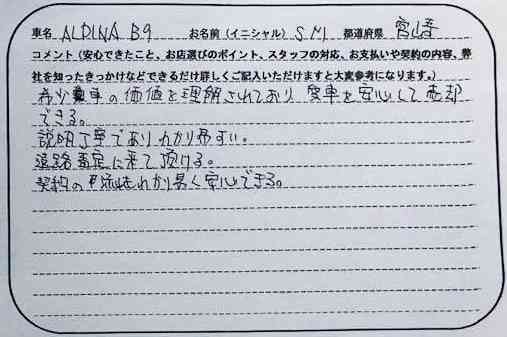 車名 ALPINA B9 お名前（イニシャル） S.M 都道府県 宮崎
コメント（安心できたこと、お店選びのポイント、スタッフの対応、お支払いや契約の内容、弊
社を知ったきっかけなどできるだけ詳しくご記入いただけますと大変参考になります。）
希少車の価値を理解されており 愛車を安心して売却
できる。
説明丁寧でありわかり易すい。
遠路査定に来て頂ける。
契約の わかり易く安心できる。